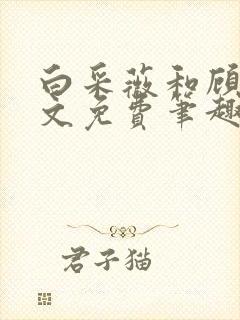 白采薇和顾
文免费笔趣
君子猫